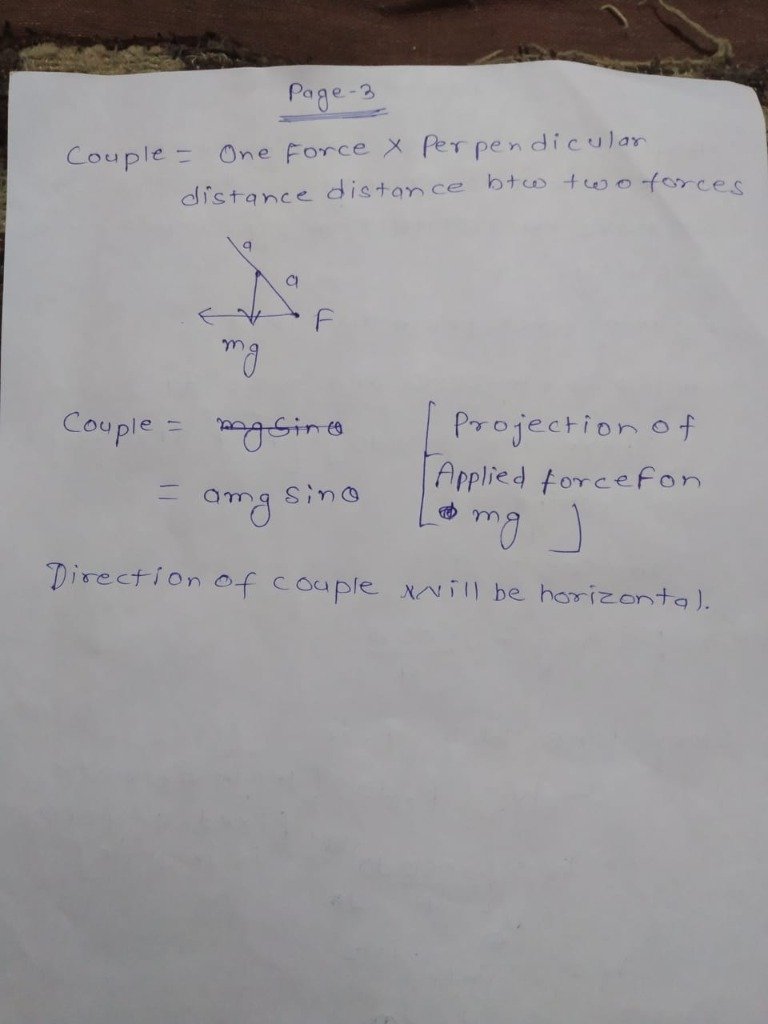 Page-3
Couple = One Force X Perpendicular
distance distance btw two forces
a
a
F
mg
Couple = mg sinθ [Projection of
= amg sinθ Applied force F on
mg ]
Direction of couple will be horizontal.